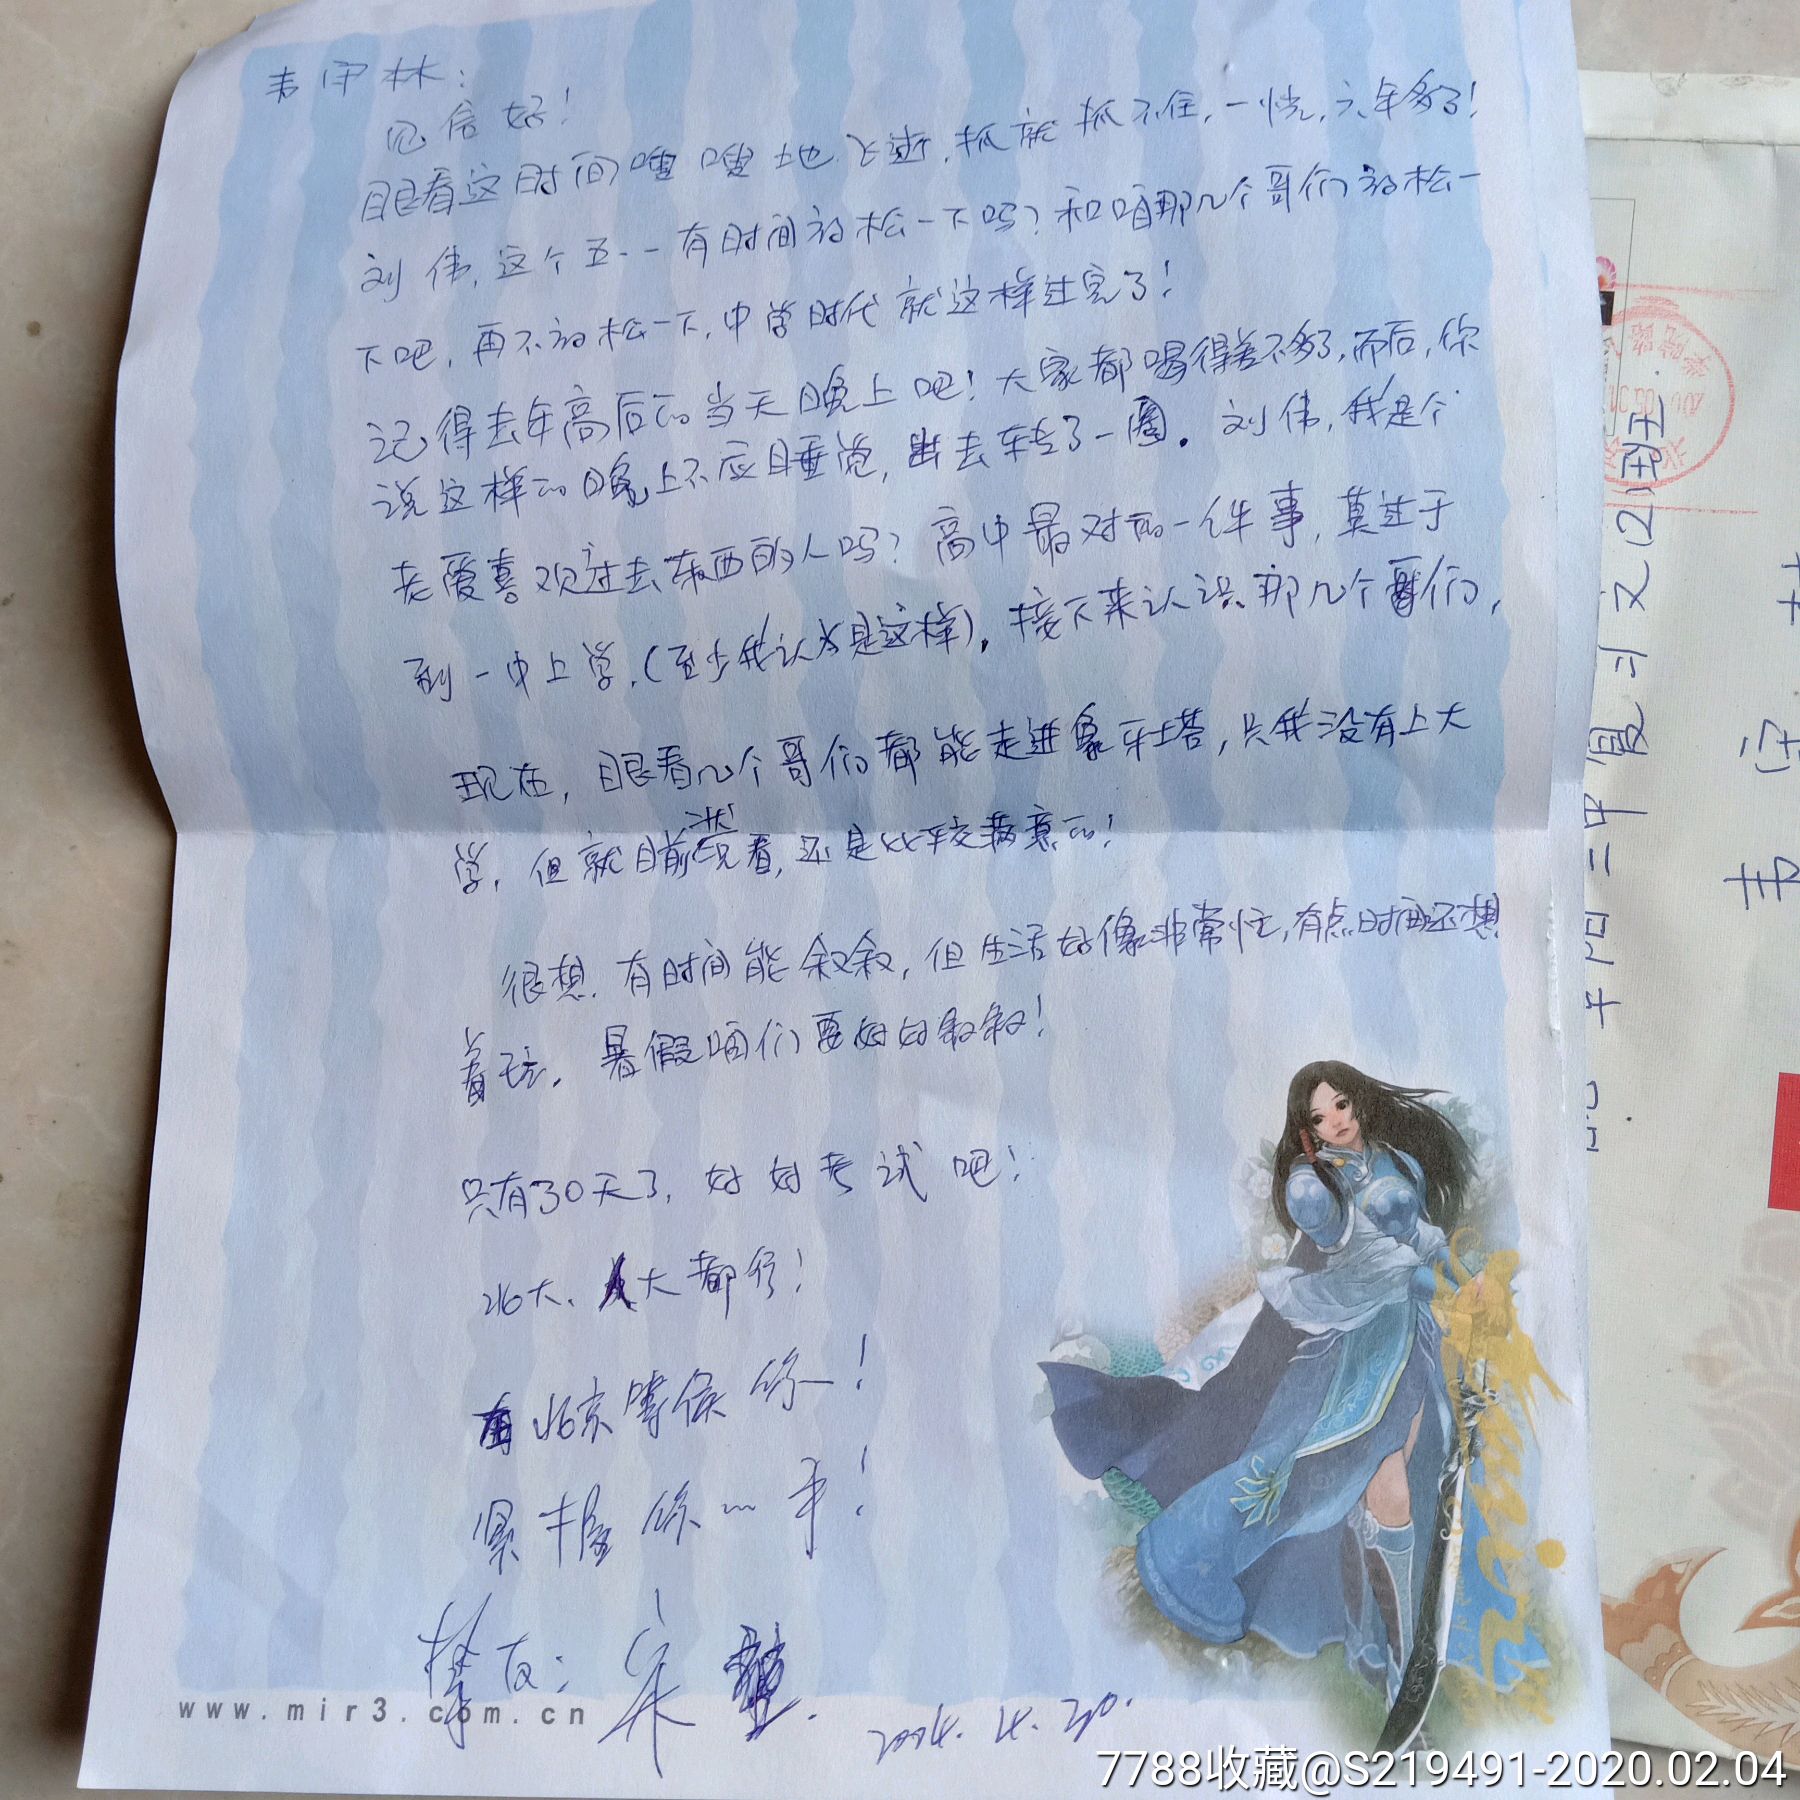 韦守林：
见信好！
眼看这时间嗖嗖地飞逝，抓就抓不住，一恍，六年多了！
刘伟，这个五·一有时间放松一下吗？和咱那几个哥们放松一
下吧，再不放松一下，中学时代就这样过完了！
记得去年高后的当天晚上吧！大家都喝得差不多了，而后，你
说这样的晚上不应睡觉，出去转了一圈。刘伟，我是个
老爱喜欢过去东西的人吗？高中最对的一件事，莫过于
到一中上学，（至少我认为是这样）。接下来认识那几个哥们，
现在，眼看几个哥们都能走进象牙塔，只我没有上大
学，但就目前状况看，还是比较满意的！
很想有时间能叙叙，但生活好像非常忙，有点时间还想
着玩，暑假咱们要好好叙叙！
只有30天了，好好考试吧！
北大、人大都行！
北京等候你！
紧握你的手！
挚友：宋
2004.4.30.
www.mir3.com.cn
mir
平阳二中复习文(2)班
韦守林
7788收藏@S219491-2020.02.04